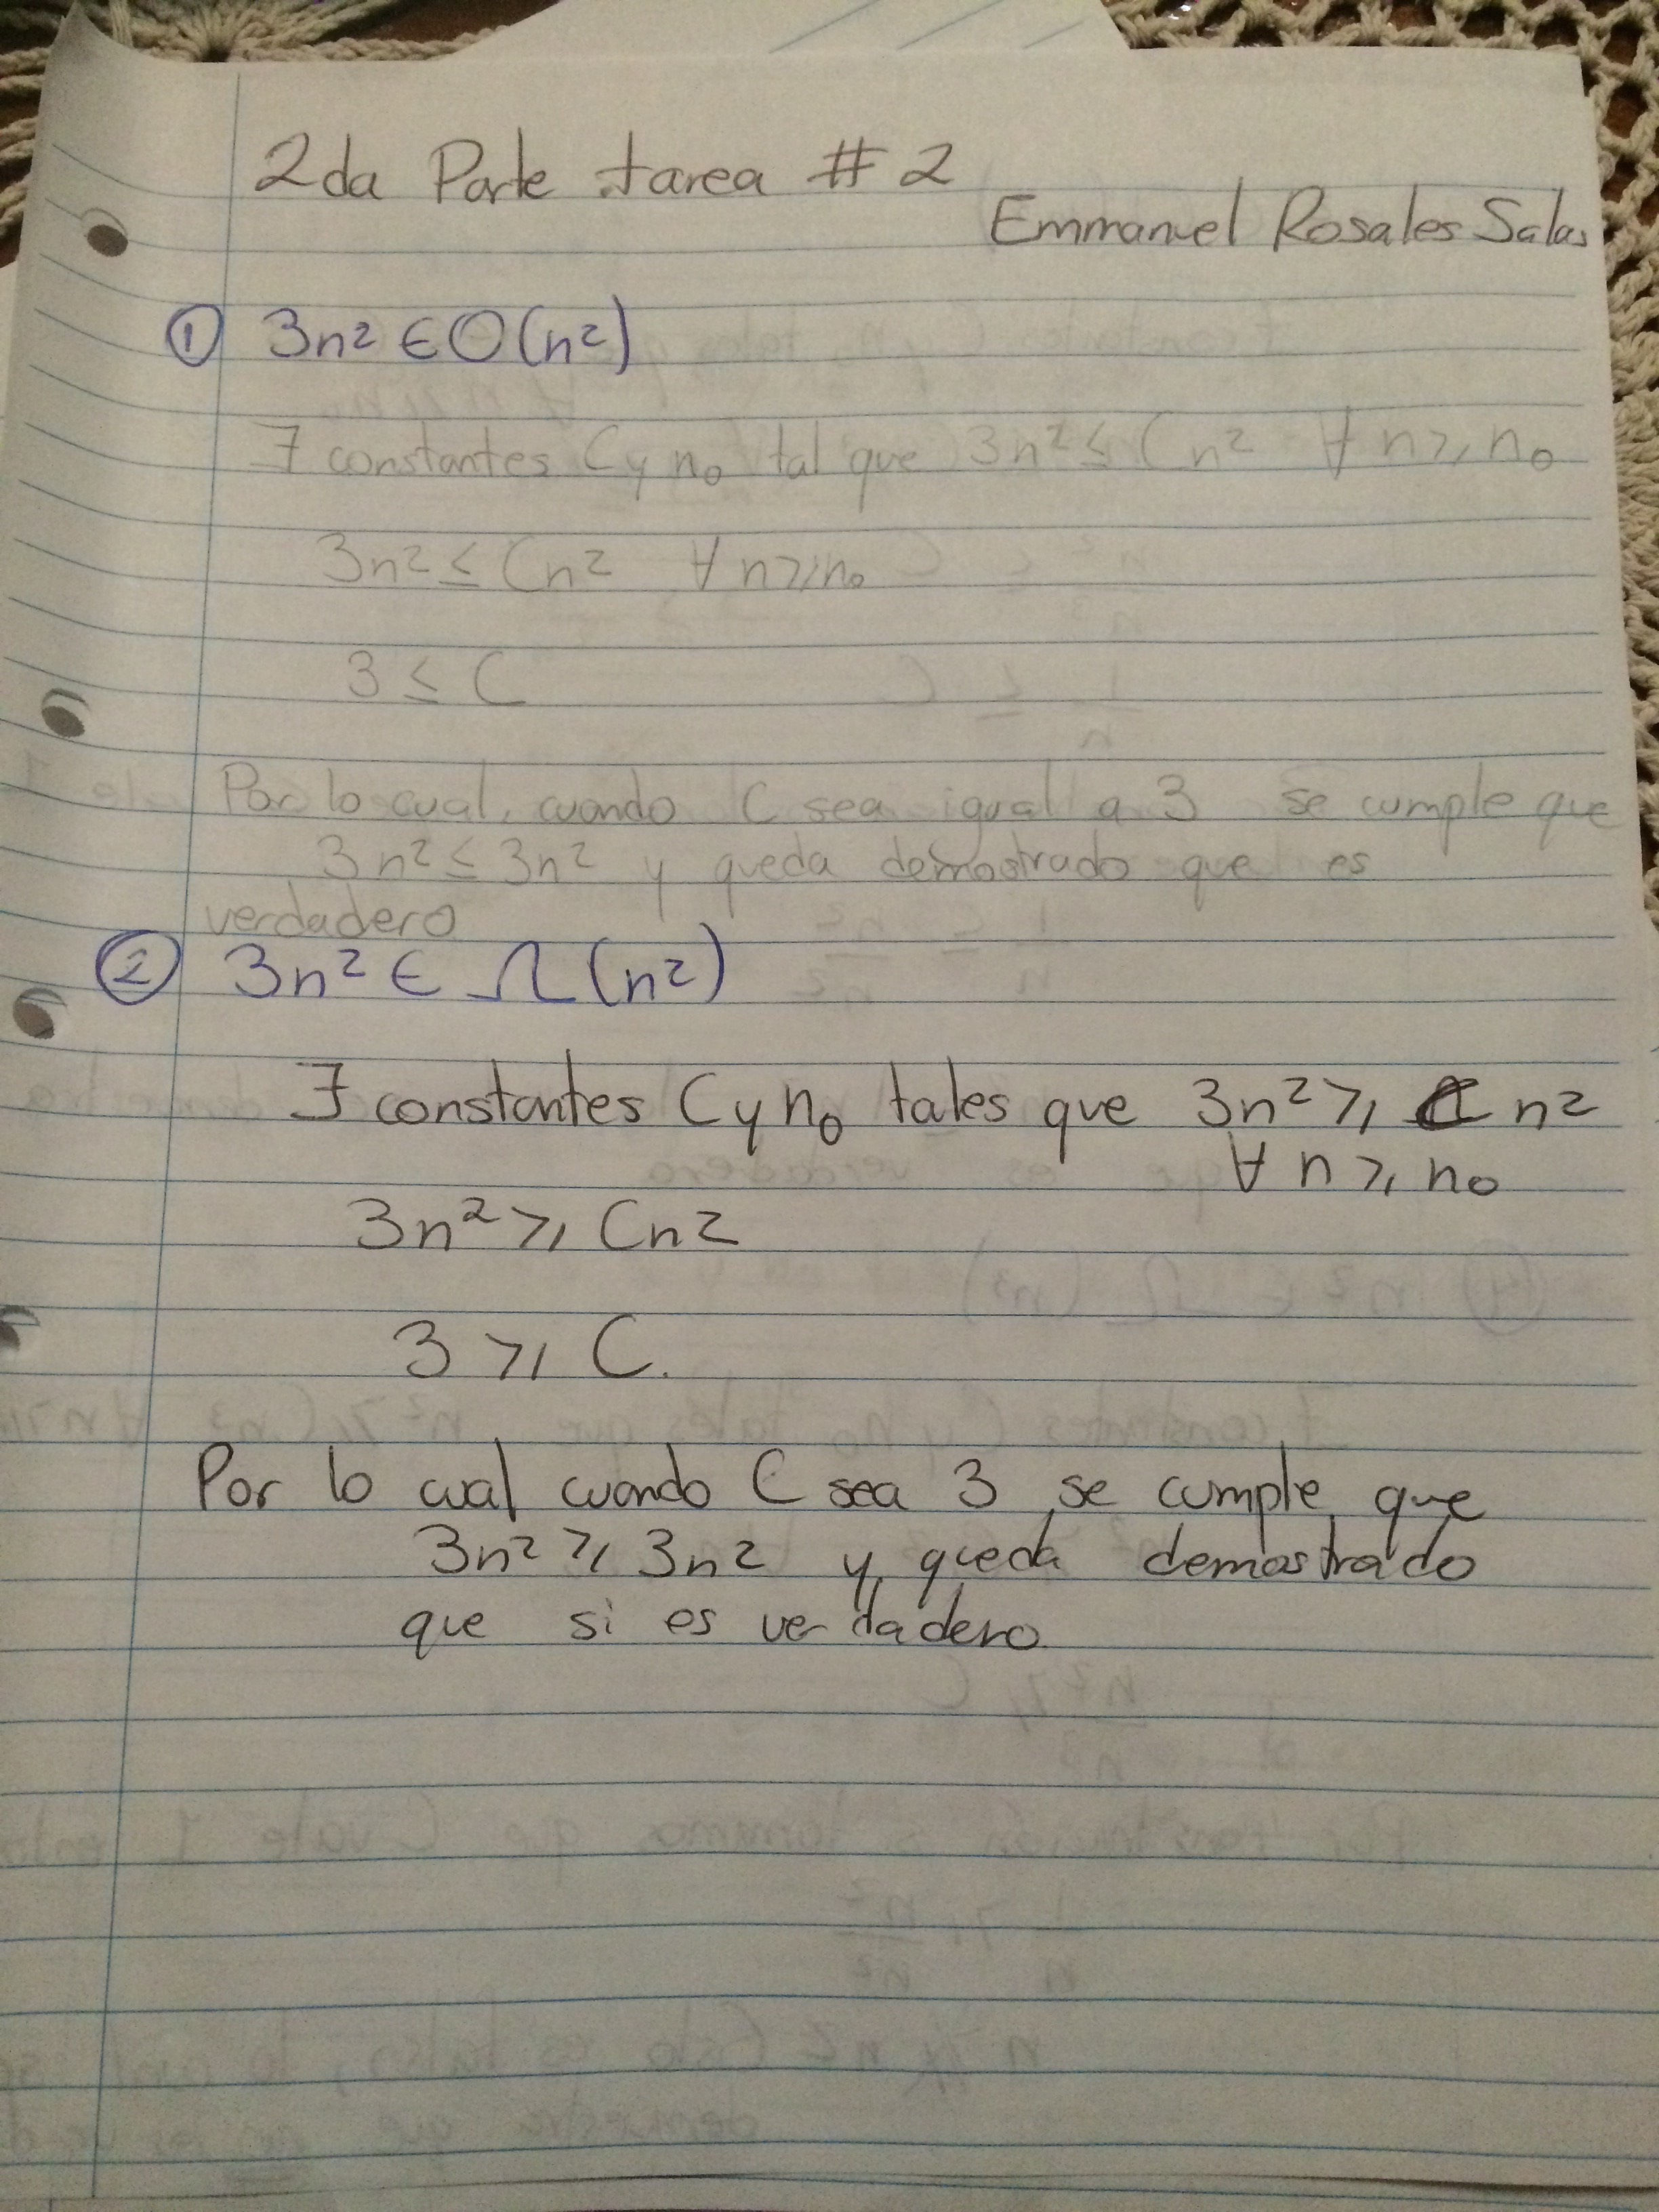 2da Parte tarea # 2
Emmanuel Rosales Salas
① 3n² ∈ O(n²)
∃ constantes C y n₀ tal que 3n² ≤ Cn² ∀ n ≥ n₀
3n² ≤ Cn² ∀ n ≥ n₀
3 ≤ C
Por lo cual, cuando C sea igual a 3 se cumple que
3n² ≤ 3n² y queda demostrado que es
verdadero
② 3n² ∈ Ω(n²)
∃ constantes C y n₀ tales que 3n² ≥ C n²
∀ n ≥ n₀
3n² ≥ Cn²
3 ≥ C.
Por lo cual cuando C sea 3 se cumple que
3n² ≥ 3n² y queda demostrado
que si es verdadero